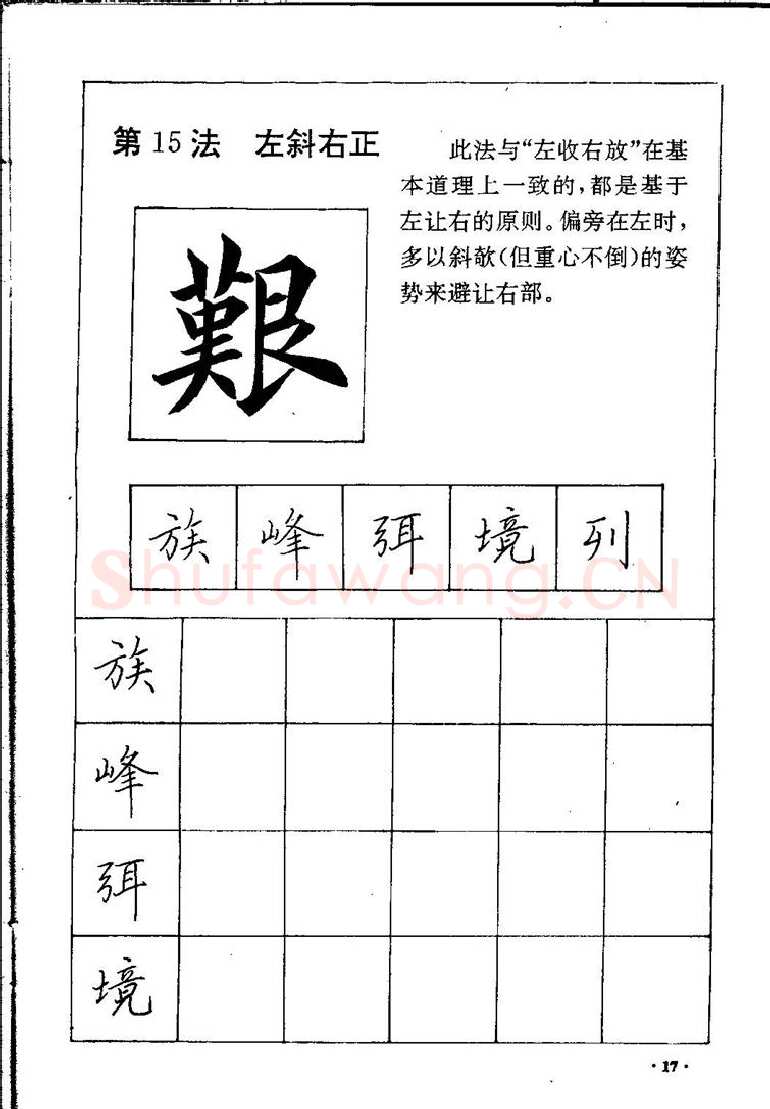 第15法 左斜右正
此法与“左收右放”在基
本道理上一致的，都是基于
左让右的原则。偏旁在左时，
多以斜欹（但重心不倒）的姿
势来避让右部。
艱
族 峰 弭 境 列
Shufawang.CN
族
峰
弭
境
·17·